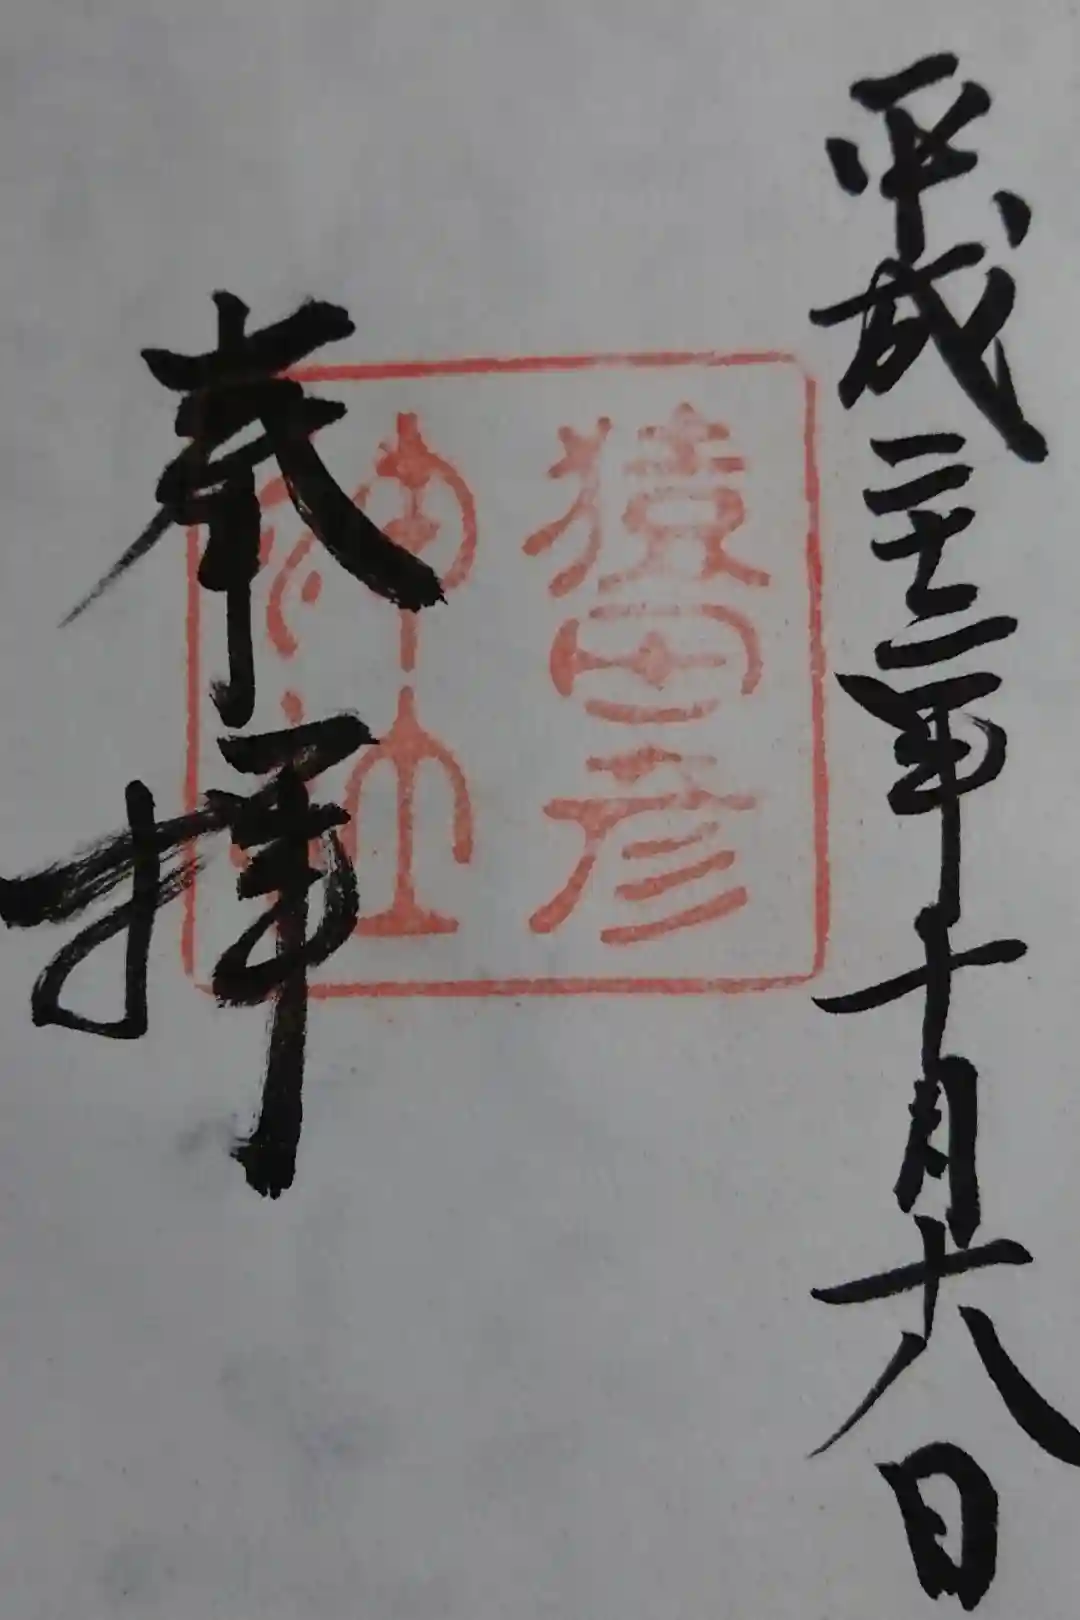 平成二十二年十月十八日
猿田彦
神社
奉拝